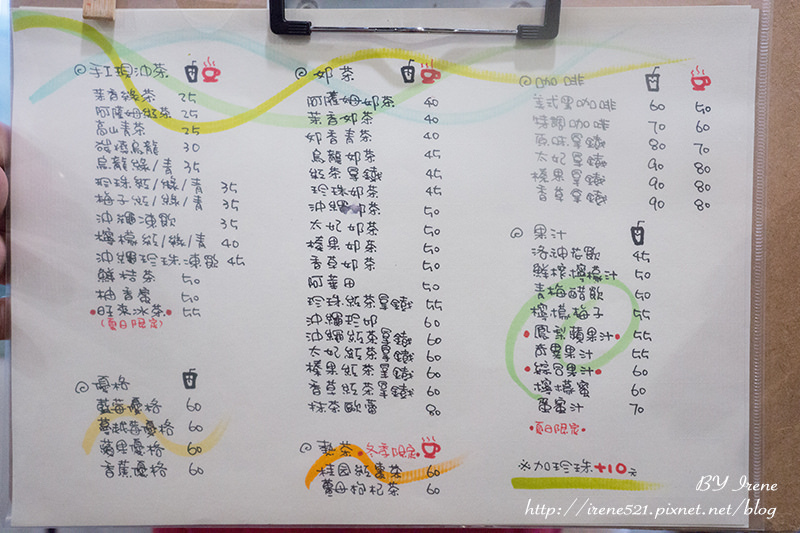 手工現沖茶
茉香綠茶 25
阿薩姆紅茶 25
高山青茶 25
烏龍 30
烏龍綠/青 35
珍珠紅/綠/青 35
梅子紅/綠/青 35
沖繩凍飲 35
檸檬紅/綠/青 40
沖繩珍珠凍飲 45
鮮桔茶 50
柚香蜜 50
旺來冰茶 50
(夏日限定)
優格
藍莓優格 60
蔓越莓優格 60
蘋果優格 60
香蕉優格 60
奶茶
阿薩姆奶茶 40
茉香奶茶 40
奶香青茶 40
烏龍奶茶 45
紅茶拿鐵 45
珍珠奶茶 45
沖繩奶茶 50
太妃奶茶 50
榛果奶茶 50
香草奶茶 50
阿華田 50
珍珠紅茶拿鐵 55
沖繩珍奶 60
沖繩紅茶拿鐵 60
太妃紅茶拿鐵 60
榛果紅茶拿鐵 60
香草紅茶拿鐵 60
抹茶歐蕾 80
熱茶 冬季限定
桂圓紅棗茶 60
薑母枸杞茶 60
咖啡
美式黑咖啡 60 50
特調咖啡 70 60
原味拿鐵 80 70
太妃拿鐵 90 80
榛果拿鐵 90 80
香草拿鐵 90 80
果汁
洛神花飲 45
鮮榨檸檬汁 50
青梅醋飲 50
檸檬梅子 55
鳳梨蘋果汁 55
奇異果汁 55
綜合果汁 60
檸檬蜜 60
蜜汁 70
夏日限定
※加珍珠+10元
BY Irene
http://irene521.pixnet.net/blog